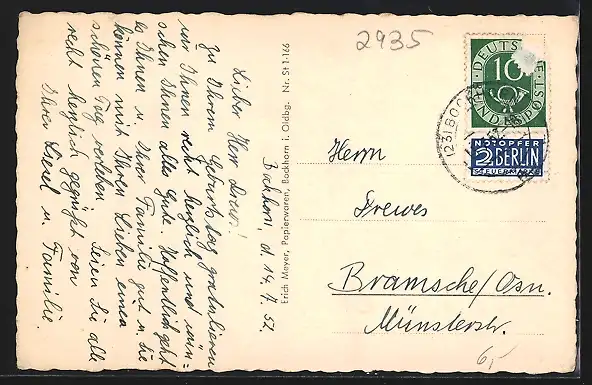 Bockhorn, d. 14. 7. 52.
Lieber Herr Drewes!
Zu Ihrem Geburtstag gratulieren
wir Ihnen recht herzlich und wün=
schen Ihnen alles Gute. Hoffentlich geht
es Ihnen u. Ihrer Familie gut u. Sie
können mit Ihren Lieben einen
schönen Tag verleben. Seien Sie alle
recht herzlich gegrüßt von
Ihrer Liesel u. Familie.
Erich Meyer, Papierwaren, Bockhorn i. Oldbg. Nr. St 1-126
2935
DEUTS
10
BUNDESPOST
(23) BOCKH
NOTOPFER
2 BERLIN
STEUERMARKE
Herrn
Drewes
Bramsche/Osn.
Münsterstr.
6,-